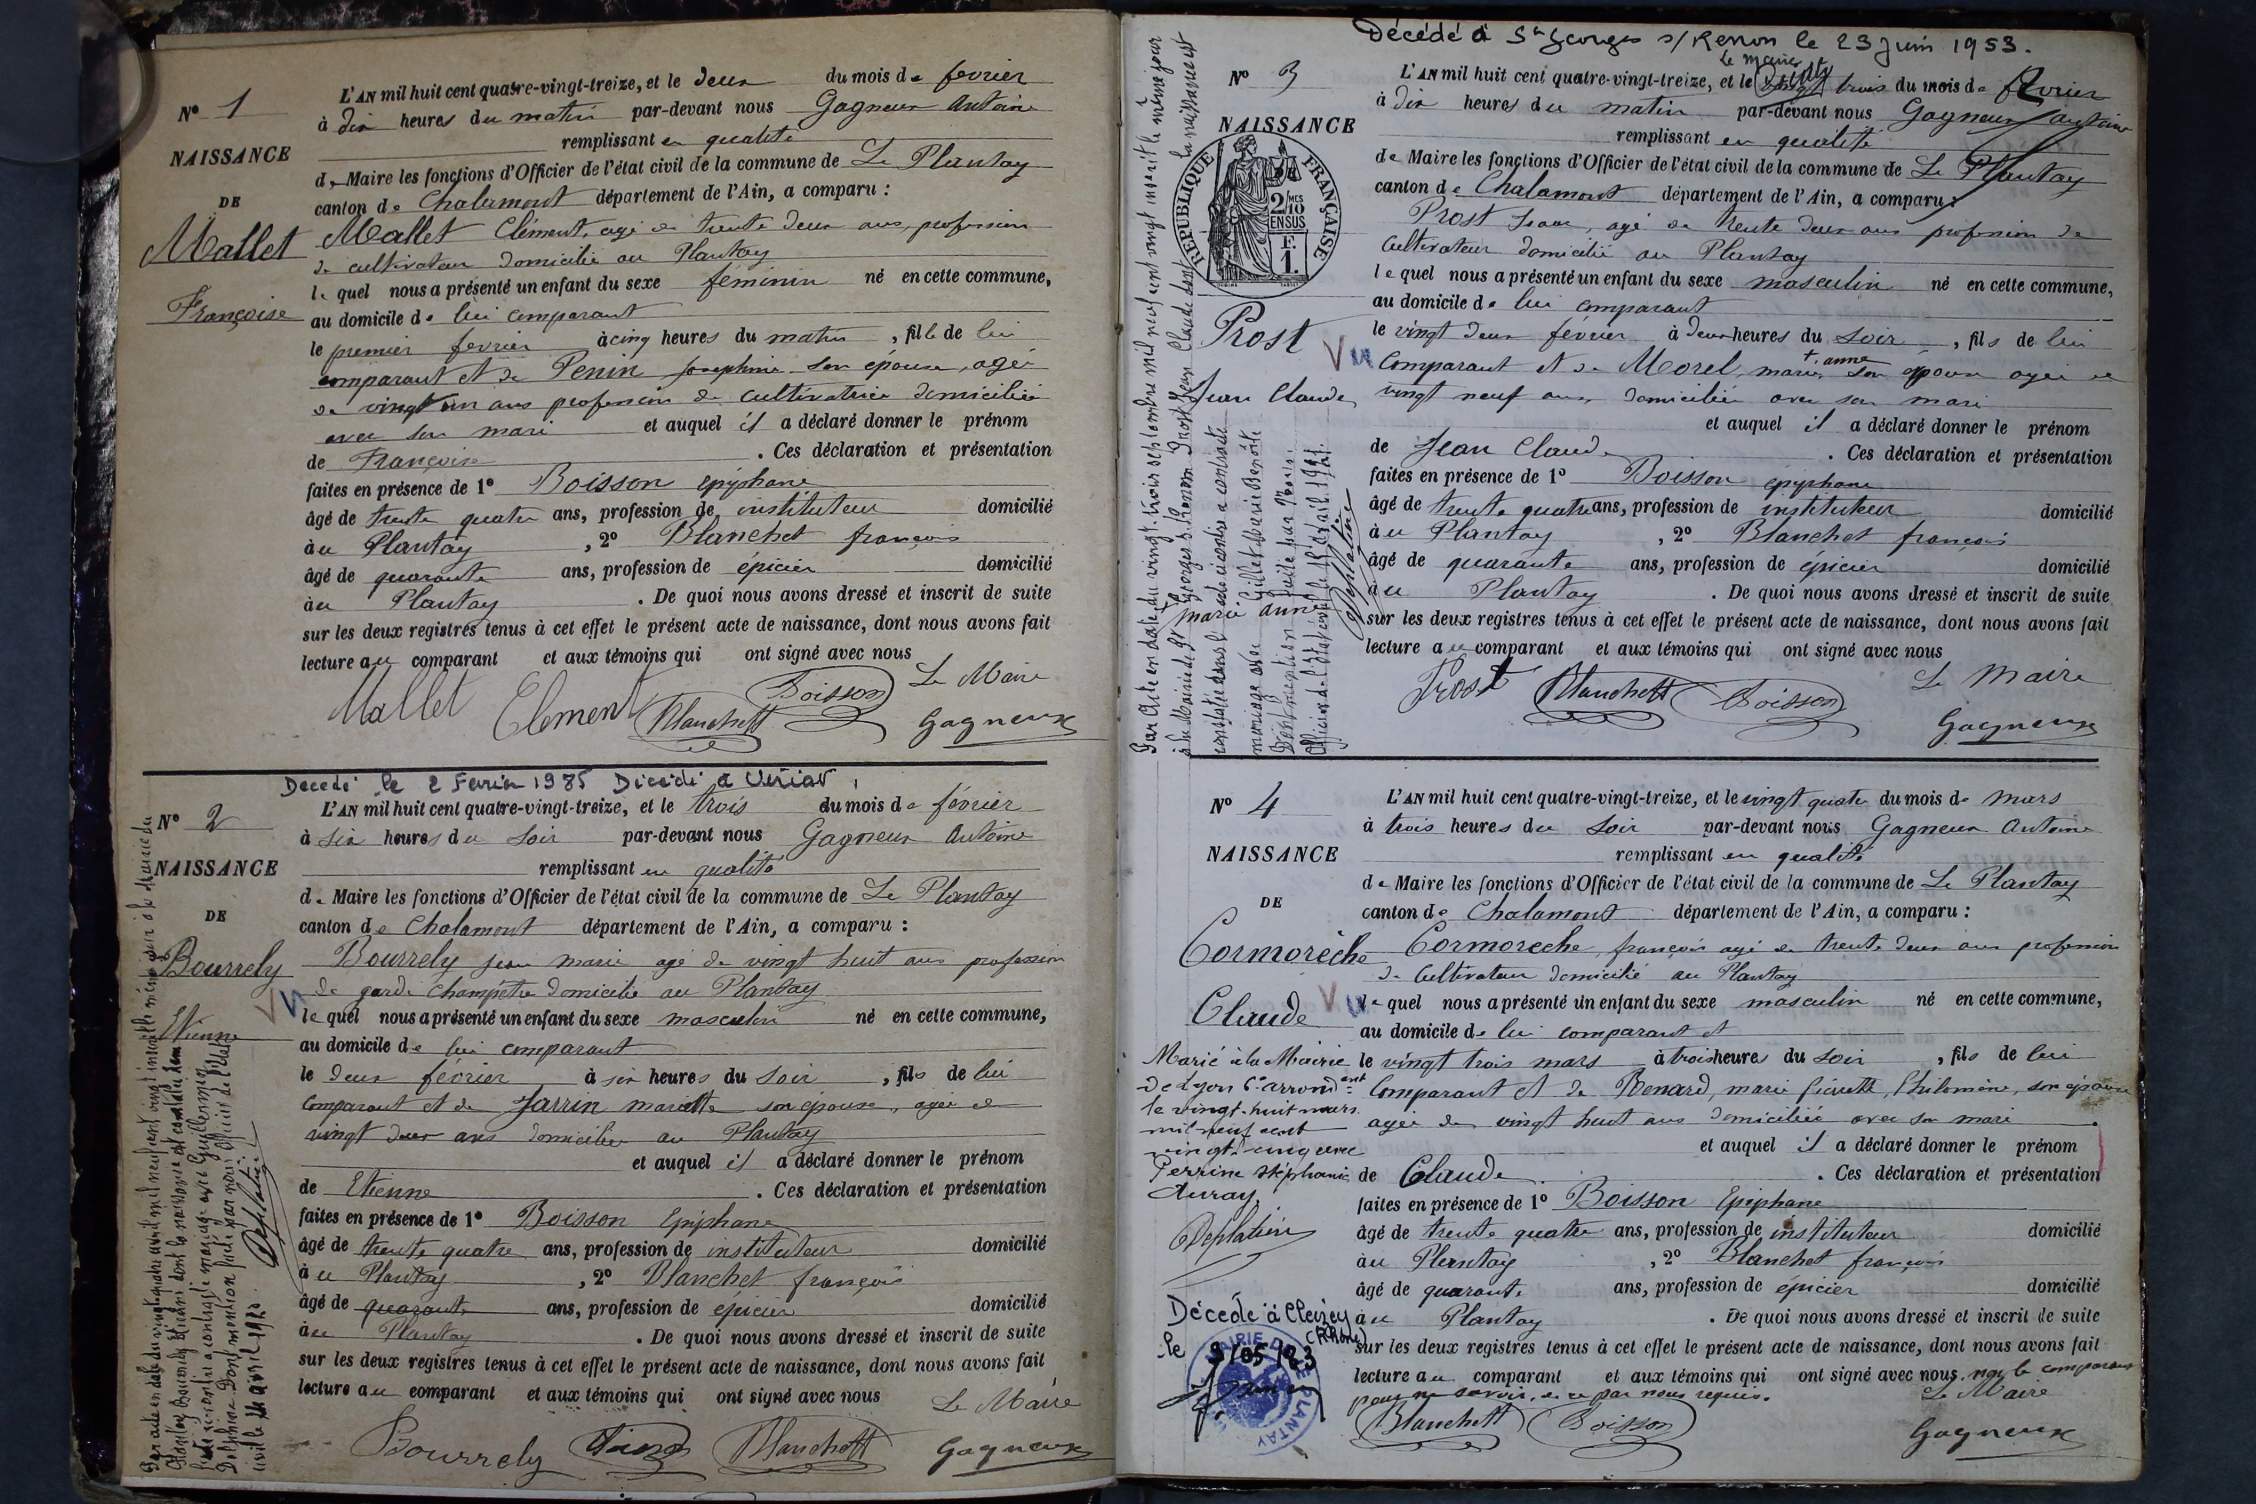 L'AN mil huit cent quatre-vingt-treize, et le deux du mois de fevrier
à dix heures du matin par-devant nous Gagneux Antoine
remplissant en qualité
de Maire les fonctions d'Officier de l'état civil de la commune de Le Plantay
canton de Chalamont département de l'Ain, a comparu :
Mallet Clément, agé de trente deux ans, profession
de cultivateur domicilié au Plantay
le quel nous a présenté un enfant du sexe féminin né en cette commune,
au domicile de lui comparant
le premier fevrier à cinq heures du matin, fille de lui
comparant et de Penin Josephine son épouse, agée
de vingt un ans profession de cultivatrice domiciliée
avec son mari et auquel il a déclaré donner le prénom
de Françoise . Ces déclaration et présentation
faites en présence de 1° Boisson epiphane
âgé de trente quatre ans, profession de instituteur domicilié
à au Plantay , 2° Blanchet françois
âgé de quarante ans, profession de épicier domicilié
à au Plantay . De quoi nous avons dressé et inscrit de suite
sur les deux registres tenus à cet effet le présent acte de naissance, dont nous avons fait
lecture au comparant et aux témoins qui ont signé avec nous
Le Maire
Mallet Clement Blanchett Boisson Gagneux
N° 1
NAISSANCE
DE
Mallet
Françoise
Décédé le 2 Fevrier 1985 Décédé à Viriat
L'AN mil huit cent quatre-vingt-treize, et le trois du mois de février
à six heures du soir par-devant nous Gagneux Antoine
remplissant en qualité
de Maire les fonctions d'Officier de l'état civil de la commune de Le Plantay
canton de Chalamont département de l'Ain, a comparu :
Bourrely jean marie agé de vingt huit ans profession
de garde champêtre domicilié au Plantay
le quel nous a présenté un enfant du sexe masculin né en cette commune,
au domicile de lui comparant
le deux février à six heures du soir, fils de lui
comparant et de Jarrin mariette son épouse, agée de
vingt deux ans domiciliée au Plantay
et auquel il a déclaré donner le prénom
de Etienne . Ces déclaration et présentation
faites en présence de 1° Boisson Epiphane
âgé de trente quatre ans, profession de instituteur domicilié
à au Plantay , 2° Blanchet françois
âgé de quarante ans, profession de épicier domicilié
à au Plantay . De quoi nous avons dressé et inscrit de suite
sur les deux registres tenus à cet effet le présent acte de naissance, dont nous avons fait
lecture au comparant et aux témoins qui ont signé avec nous
Le Maire
Bourrely Blanchett Gagneux
N° 2
NAISSANCE
DE
Bourrely
Etienne
Vu
Par acte en date du vingt quatre avril mil neuf cent vingt inscrit le même jour à la Mairie du
Plantay Bourrely Etienne dont la naissance est constatée dans
l'acte ci-contre a contracté mariage avec Guillermin
Delphine Dont mention faite par nous Officier de l'Etat
civil le avril 1920.
Décédé à St Georges s/ Renon le 23 Juin 1953.
Le Maire
L'AN mil huit cent quatre-vingt-treize, et le vingt trois du mois de février
à dix heures du matin par-devant nous Gagneux Antoine
remplissant en qualité
de Maire les fonctions d'Officier de l'état civil de la commune de Le Plantay
canton de Chalamont département de l'Ain, a comparu :
Prost , agé de trente deux ans profession de
cultivateur domicilié au Plantay
le quel nous a présenté un enfant du sexe masculin né en cette commune,
au domicile de lui comparant
le vingt deux février à deux heures du soir, fils de lui
comparant et de Morel, marie + anne son épouse agée de
vingt neuf ans domiciliée avec son mari
et auquel il a déclaré donner le prénom
de Jean Claude . Ces déclaration et présentation
faites en présence de 1° Boisson epiphane
âgé de trente quatre ans, profession de instituteur domicilié
à au Plantay , 2° Blanchet françois
âgé de quarante ans, profession de épicier domicilié
à au Plantay . De quoi nous avons dressé et inscrit de suite
sur les deux registres tenus à cet effet le présent acte de naissance, dont nous avons fait
lecture au comparant et aux témoins qui ont signé avec nous
Le Maire
Prost Blanchett Boisson Gagneux
N° 3
NAISSANCE
RÉPUBLIQUE FRANÇAISE
2/10 MES EN SUS
F. 1.
Prost
Jean Claude
Vu
marie anne
Par Acte en date du vingt-trois septembre mil neuf cent vingt inscrit le même jour
à la Mairie de St Georges s. Renon Prost Jean Claude dont la naissance est
constatée dans l'acte ci-contre a contracté
mariage avec Gillet Marie Benoîte
Dont mention faite par Nous
Officier de l'état civil le avril 1921.
L'AN mil huit cent quatre-vingt-treize, et le vingt quatre du mois de mars
à trois heures du soir par-devant nous Gagneux Antoine
remplissant en qualité
de Maire les fonctions d'Officier de l'état civil de la commune de Le Plantay
canton de Chalamont département de l'Ain, a comparu :
Cormoreche, françois agé de trente deux ans profession
de cultivateur domicilié au Plantay
le quel nous a présenté un enfant du sexe masculin né en cette commune,
au domicile de lui comparant et
le vingt trois mars à trois heures du soir, fils de lui
comparant et de Renard, marie pierrette Philomène, son épouse
agée de vingt huit ans domiciliée avec son mari
et auquel il a déclaré donner le prénom
de Claude . Ces déclaration et présentation
faites en présence de 1° Boisson Epiphane
âgé de trente quatre ans, profession de instituteur domicilié
à au Plantay , 2° Blanchet françois
âgé de quarante ans, profession de épicier domicilié
à au Plantay . De quoi nous avons dressé et inscrit de suite
sur les deux registres tenus à cet effet le présent acte de naissance, dont nous avons fait
lecture au comparant et aux témoins qui ont signé avec nous, non le comparant
pour ne savoir, de ce par nous requis.
Le Maire
Blanchett Boisson Gagneux
N° 4
NAISSANCE
DE
Cormorèche
Claude
Vu
Marié à la Mairie
de Lyon 6e arrondent
le vingt-huit mars
mil neuf cent
vingt-cinq avec
Perrine Stéphanie
Auray.
Déplatin
Décédé à
(Rhône)
le
MAIRIE DE PLANTAY